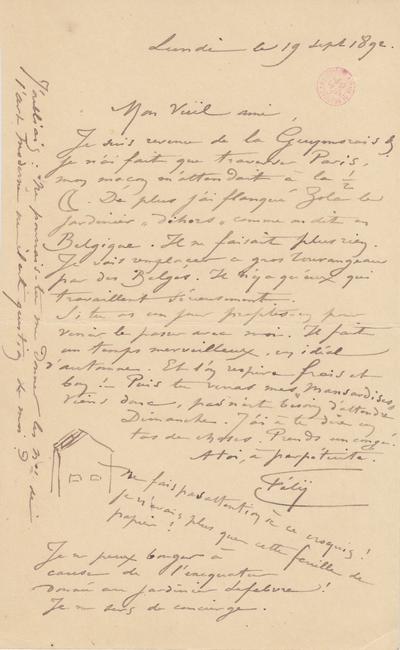 Lundi le 19 Sept 1892.
Mon Vieil ami,
Je suis revenu de la Guymorais &
je n'ai fait que traverser Paris,
mon maçon m'attendait à la 1/2
L. De plus j'ai flanqué Zola le
jardinier « dehors » comme on dit en
Belgique. Il ne faisait plus rien.
Je vais remplacer ce gros tourangeau
par des Belges. Il n'y a qu'eux qui
travaillent sérieusement.
Si tu as un jour profites-en pour
venir le passer avec moi. Il fait
un temps merveilleux, un idéal
d'automne. Et l'on respire frais et
bon! Puis tu verras mes Mansardises
viens donc, pas n'est besoin d'attendre
Dimanche. J'ai à te dire un
tas de choses. Prends un congé.
A toi, à perpétuité.
Fély
Ne fais pas attention à ce croquis!
je n'avais plus que cette feuille de
papier!
Je ne peux bouger à
cause de l'exequatur
donné au jardinier Lefebvre!
Je me sers de concierge.
J'oubliais: Ne pourrais-tu me donner les Nos de
l'art moderne où il est question de moi?